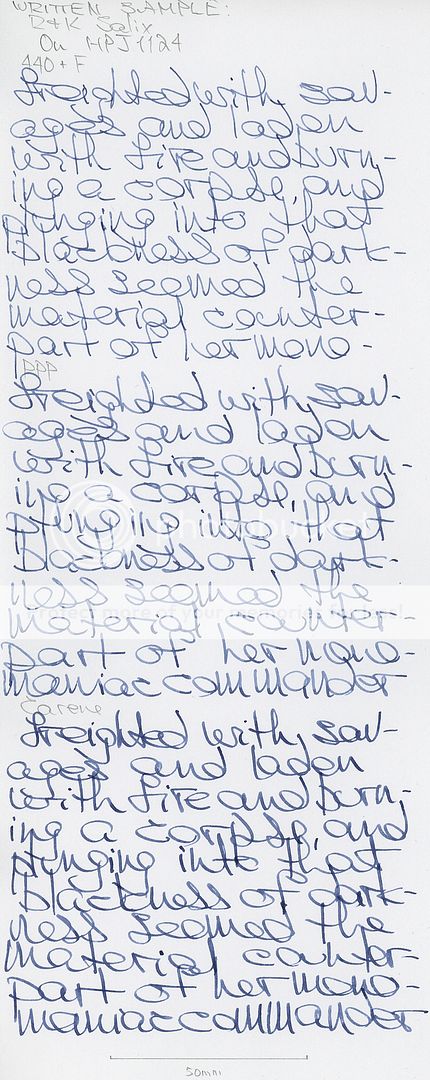 WRITTEN SAMPLE:
R&K Salix
On HPJ1124
440 + F
freighted with sav-
ages and laden
with fire and burn-
ing a corpse, and
plunging into that
blackness of dark-
ness seemed the
material counter-
part of her mono-
DPP
freighted with sav-
ages and laden
with fire and burn-
ing a corpse, and
plunging into that
blackness of dark-
ness seemed the
material counter-
part of her mono-
maniac commander
Carene
freighted with sav-
ages and laden
with fire and burn-
ing a corpse, and
plunging into that
blackness of dark-
ness seemed the
material counter-
part of her mono-
maniac commander
50mm